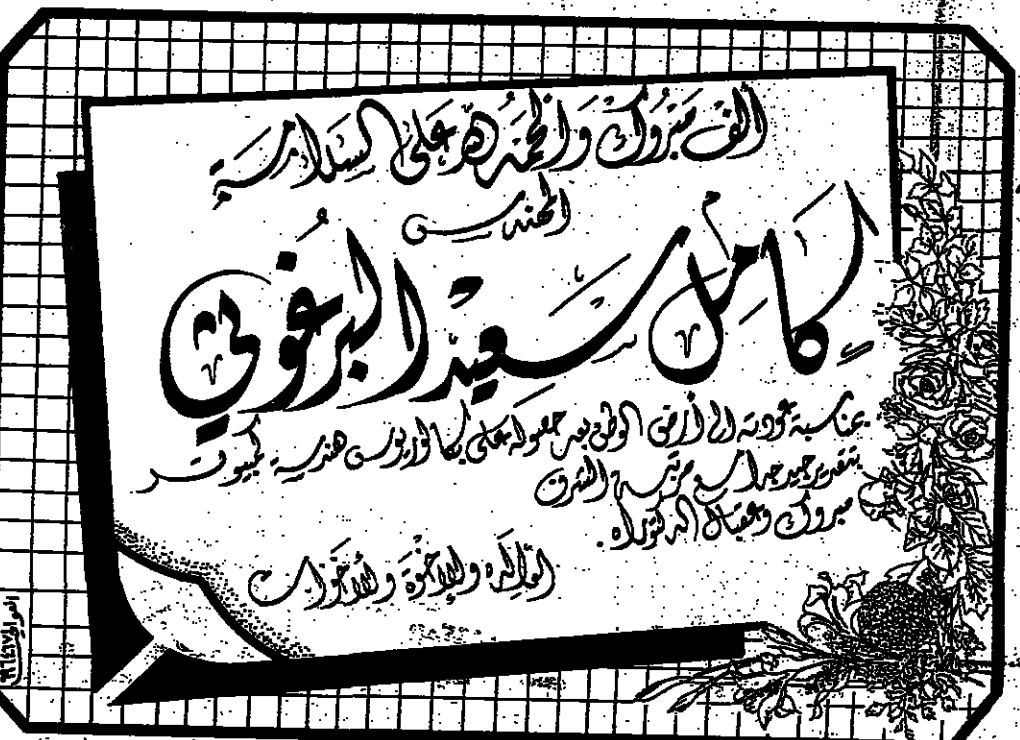 ألف مبروك والحمد لله على السلامة
المهندس
كامل سعيد البرغوثي
بمناسبة عودته الى أرض الوطن بعد حصوله على بكالوريوس هندسة كمبيوتر
بتقدير جيد جدا مع مرتبة الشرف
مبروك وعقبال الدكتوراه.
الوالده والإخوة والأخوات